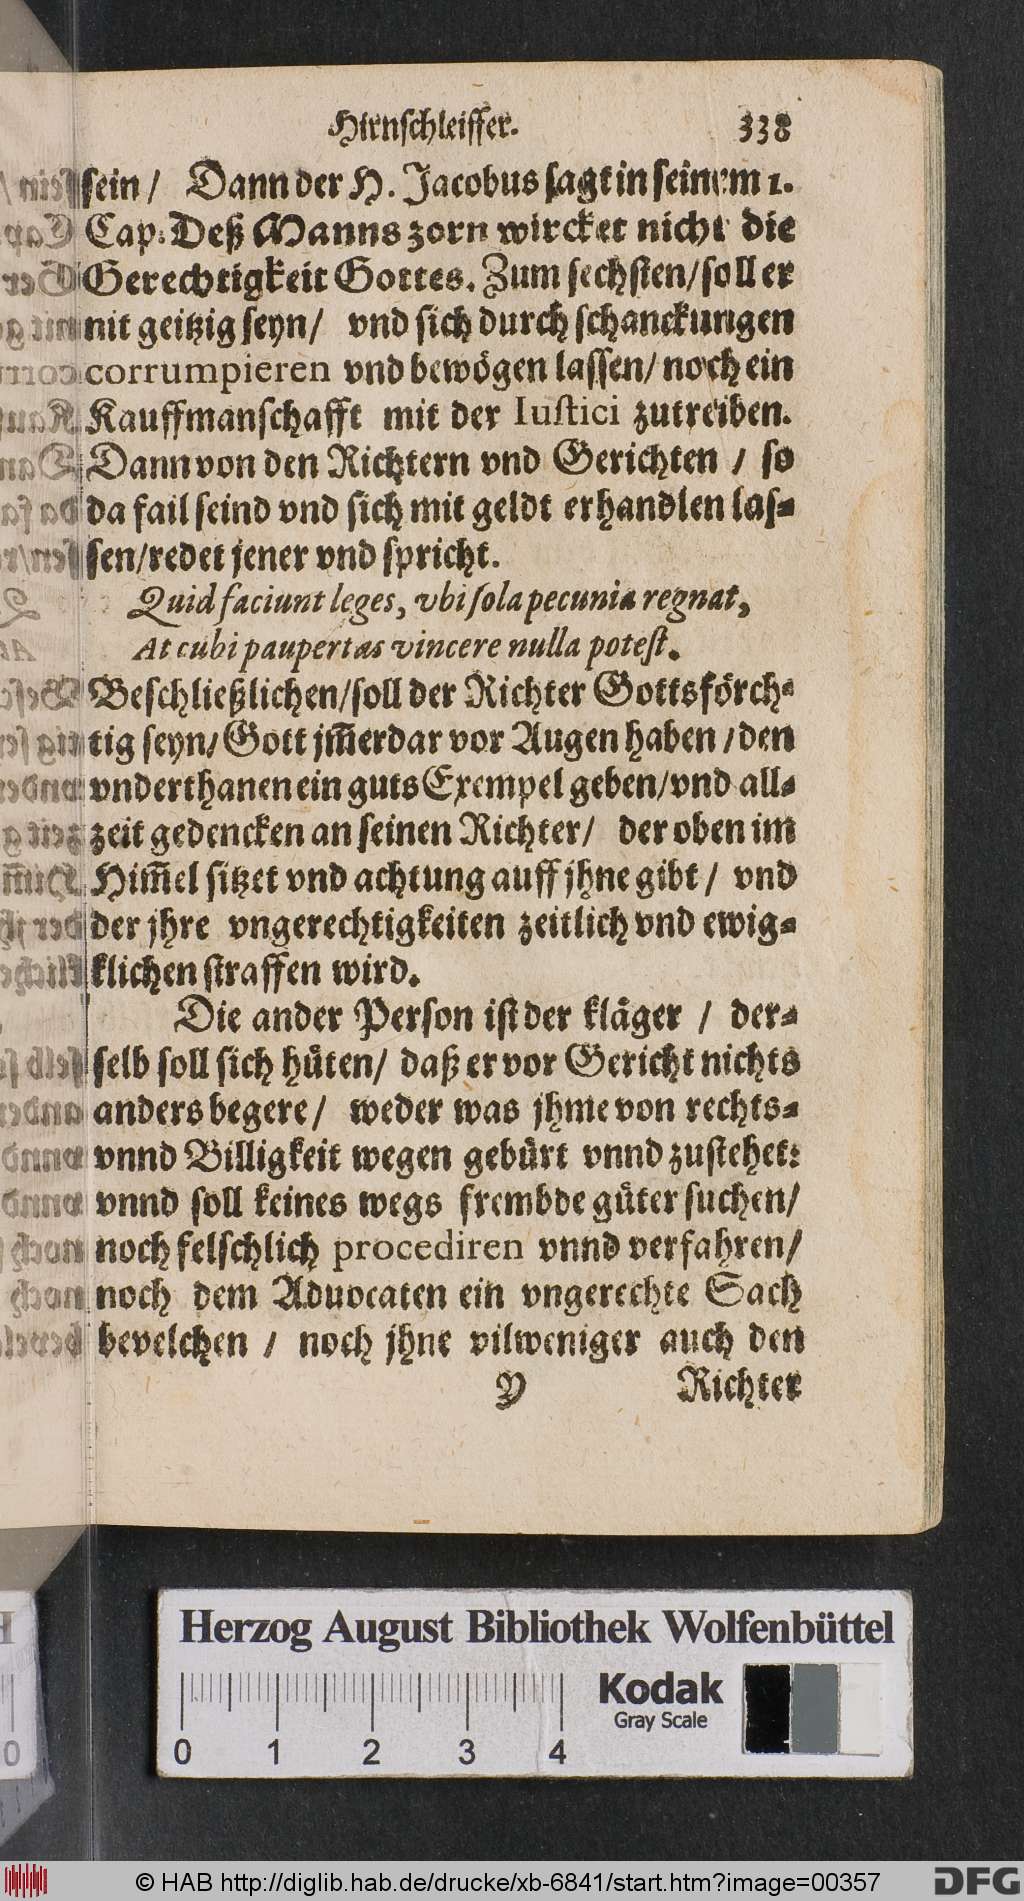 Hirnschleiffer. 338
sein / Dann der H. Jacobus sagt in seinem 1.
Cap. Deß Manns zorn wircket nicht die
Gerechtigkeit Gottes. Zum sechsten/soll er
nit geitzig seyn/ vnd sich durch schanckungen
corrumpieren vnd bewögen lassen/ noch ein
Kauffmanschafft mit der Iustici zutreiben.
Dann von den Richtern vnd Gerichten / so
da fail seind vnd sich mit geldt erhandlen las-
sen/redet jener vnd spricht.
Quid faciunt leges, vbi sola pecunia regnat,
At cubi paupertas vincere nulla potest.
Beschließlichen/soll der Richter Gottsförch-
tig seyn/ Gott jm̃erdar vor Augen haben /den
vnderthanen ein guts Exempel geben/vnd all-
zeit gedencken an seinen Richter/ der oben im
Him̃el sitzet vnd achtung auff jhne gibt / vnd
der jhre vngerechtigkeiten zeitlich vnd ewig-
klichen straffen wird.
Die ander Person ist der kläger / der-
selb soll sich hüten/ daß er vor Gericht nichts
anders begere/ weder was jhme von rechts-
vnnd Billigkeit wegen gebürt vnnd zustehet:
vnnd soll keines wegs frembde güter suchen/
noch felschlich procediren vnnd verfahren/
noch dem Aduocaten ein vngerechte Sach
bevelchen / noch jhne vilweniger auch den
Y Richter
Herzog August Bibliothek Wolfenbüttel
Kodak
Gray Scale
0 1 2 3 4
© HAB http://diglib.hab.de/drucke/xb-6841/start.htm?image=00357
DFG